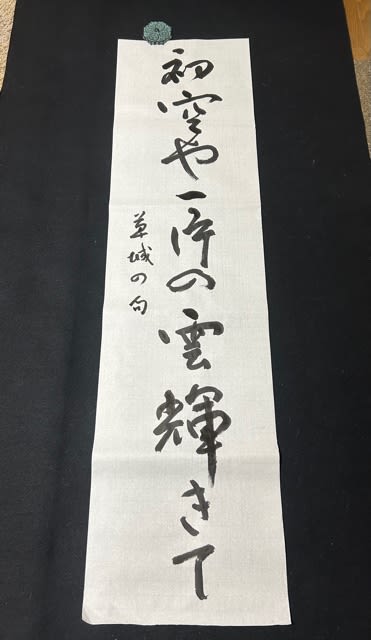 初空や一片の雲輝きて
草城の句